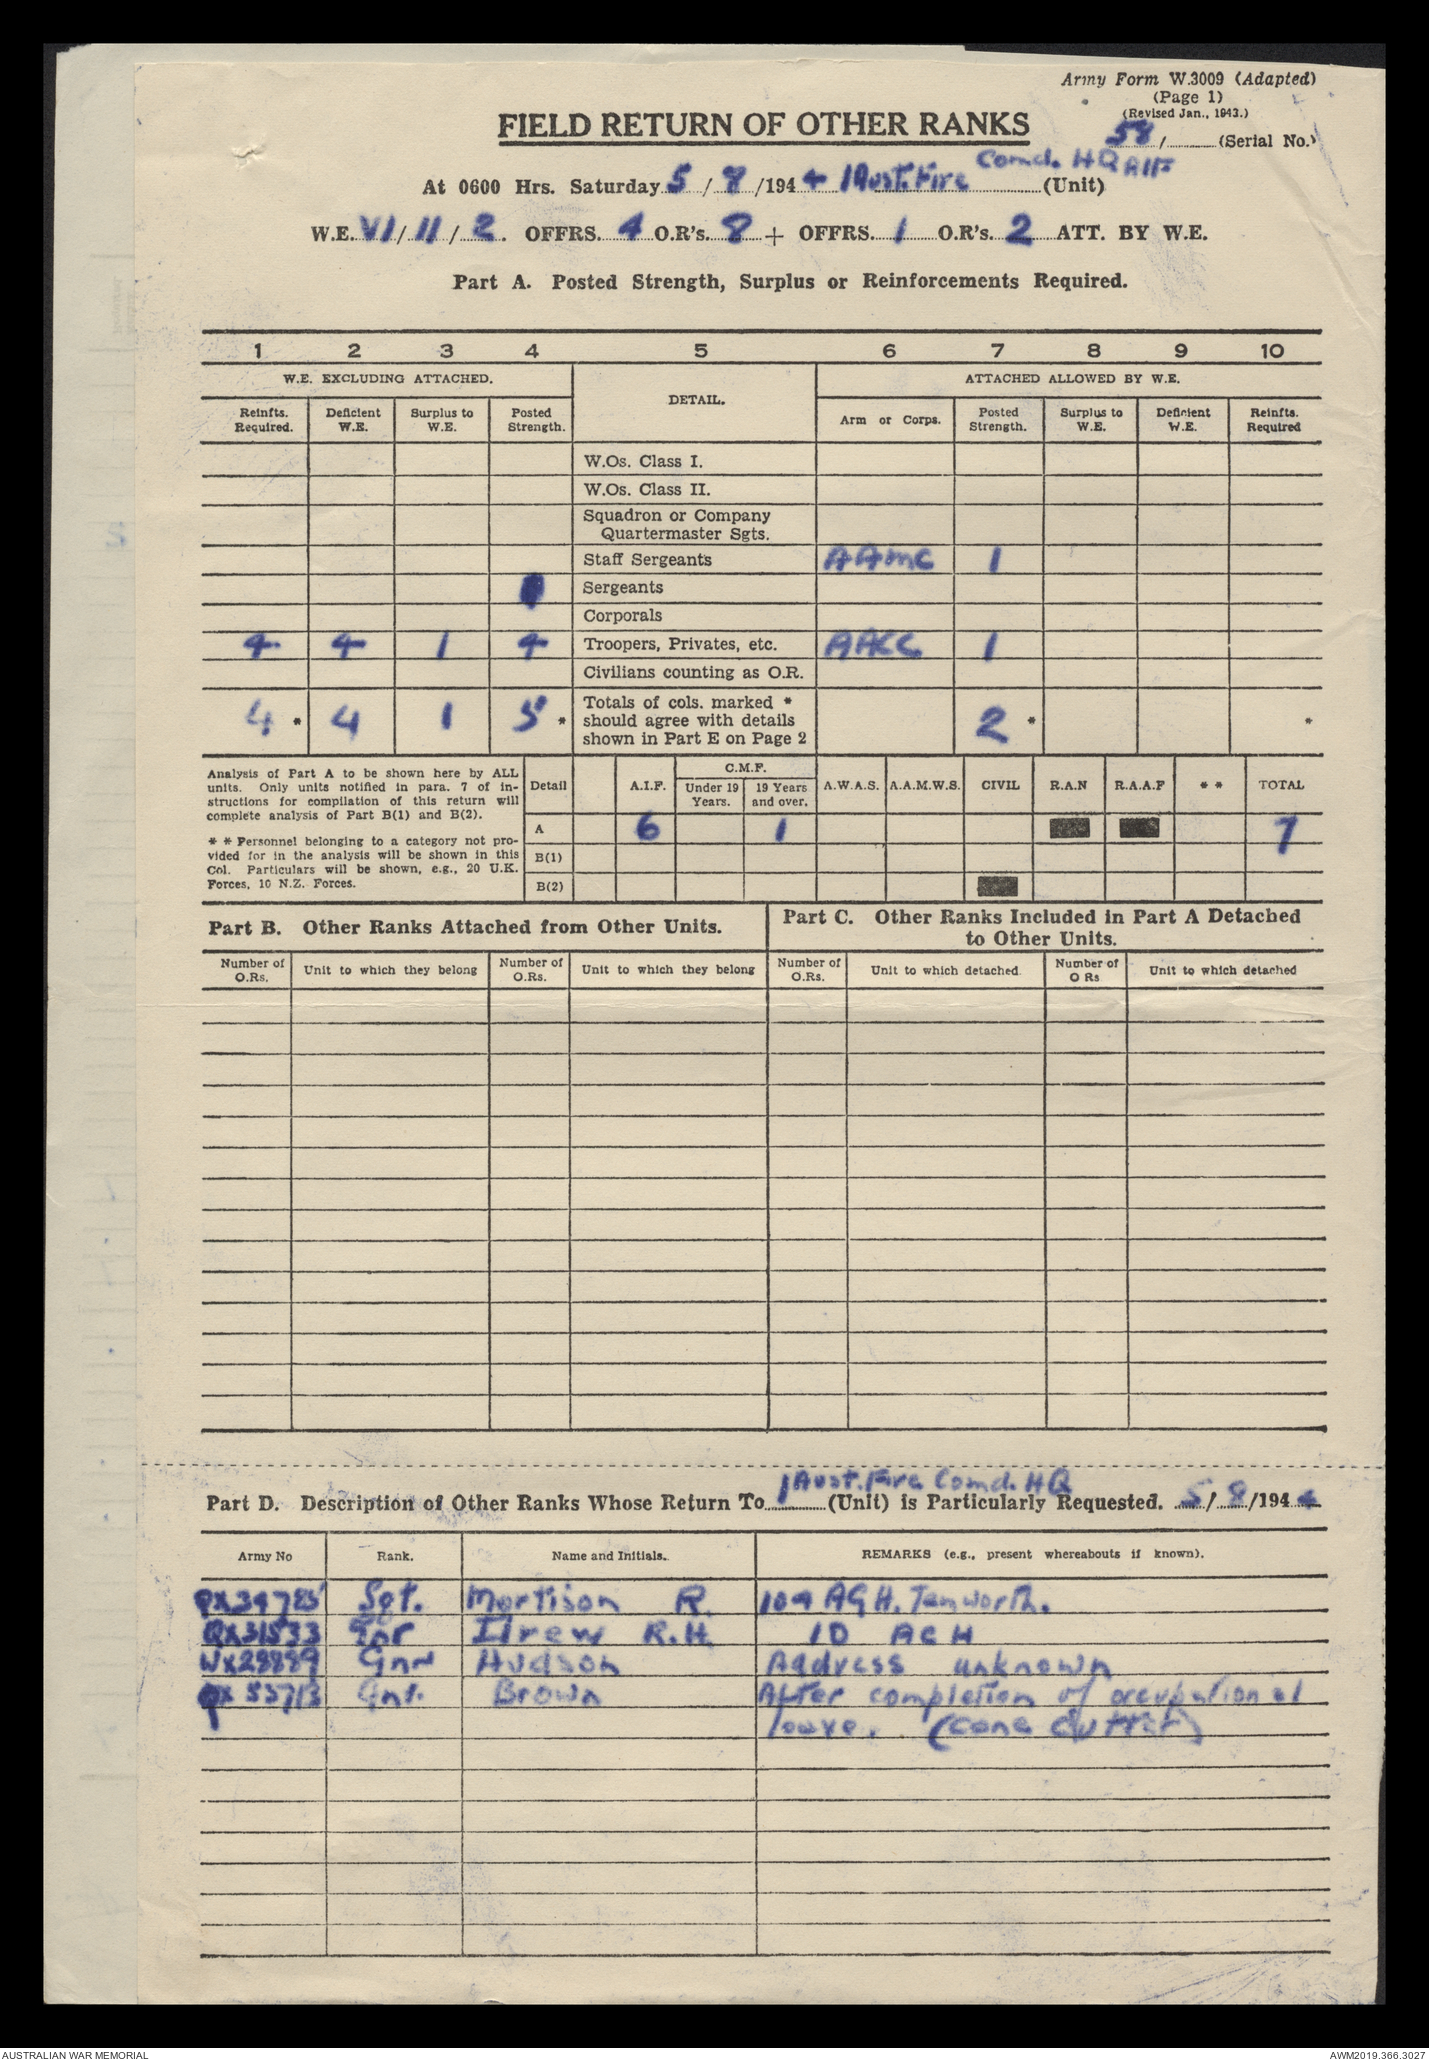 Army Form W.3009 (Adapted)
(Page 1)
(Revised Jan., 1943.)
FIELD RETURN OF OTHER RANKS
58 / (Serial No.)
Comd. HQ AIF
At 0600 Hrs. Saturday 5 / 8 /1944 1 Aust. Fire (Unit)
W.E. VI / 11 / 2. OFFRS. 4 O.R's. 8 + OFFRS. 1 O.R's. 2 ATT. BY W.E.
Part A. Posted Strength, Surplus or Reinforcements Required.
1 2 3 4 5 6 7 8 9 10
W.E. EXCLUDING ATTACHED. DETAIL. ATTACHED ALLOWED BY W.E.
Reinfts. Required. Deficient W.E. Surplus to W.E. Posted Strength. Arm or Corps. Posted Strength. Surplus to W.E. Deficient W.E. Reinfts. Required
W.Os. Class I.
W.Os. Class II.
Squadron or Company
Quartermaster Sgts.
Staff Sergeants AAMC 1
Sergeants
Corporals
4 4 1 4 Troopers, Privates, etc. AACC 1
Civilians counting as O.R.
4 * 4 1 5 * Totals of cols. marked * should agree with details shown in Part E on Page 2 2 * *
Analysis of Part A to be shown here by ALL
units. Only units notified in para. 7 of in-
structions for compilation of this return will
complete analysis of Part B(1) and B(2).
* * Personnel belonging to a category not pro-
vided for in the analysis will be shown in this
Col. Particulars will be shown, e.g., 20 U.K.
Forces, 10 N.Z. Forces.
Detail A.I.F. C.M.F. Under 19 Years. 19 Years and over. A.W.A.S. A.A.M.W.S. CIVIL R.A.N R.A.A.F * * TOTAL
A 6 1 7
B(1)
B(2)
Part B. Other Ranks Attached from Other Units.
Part C. Other Ranks Included in Part A Detached
to Other Units.
Number of O.Rs. Unit to which they belong Number of O.Rs. Unit to which they belong Number of O.Rs. Unit to which detached Number of O Rs Unit to which detached
1 Aust. Fire Comd. HQ
Part D. Description of Other Ranks Whose Return To (Unit) is Particularly Requested. 5/8/1944
Army No Rank. Name and Initials. REMARKS (e.g., present whereabouts if known).
Sgt. Mortison R. 109 AGH. Tamworth.
QX31533 Gnr Ilrew R.H. 10 ACH
WX28889 Gnr Hudson Address unknown
Gnr. Brown After completion of occupational
leave. (Cane Cutter)
AUSTRALIAN WAR MEMORIAL AWM2019.366.3027